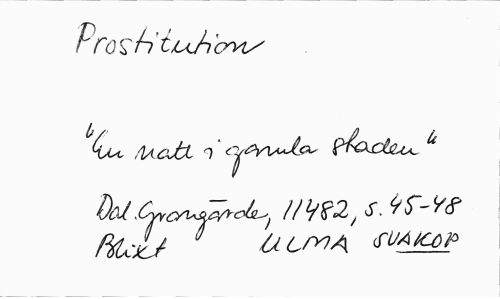 Prostitution
"En natt i gamla staden"
Dal. Grangärde, 11482, s. 45-48
Blixt ULMA SVAKOP